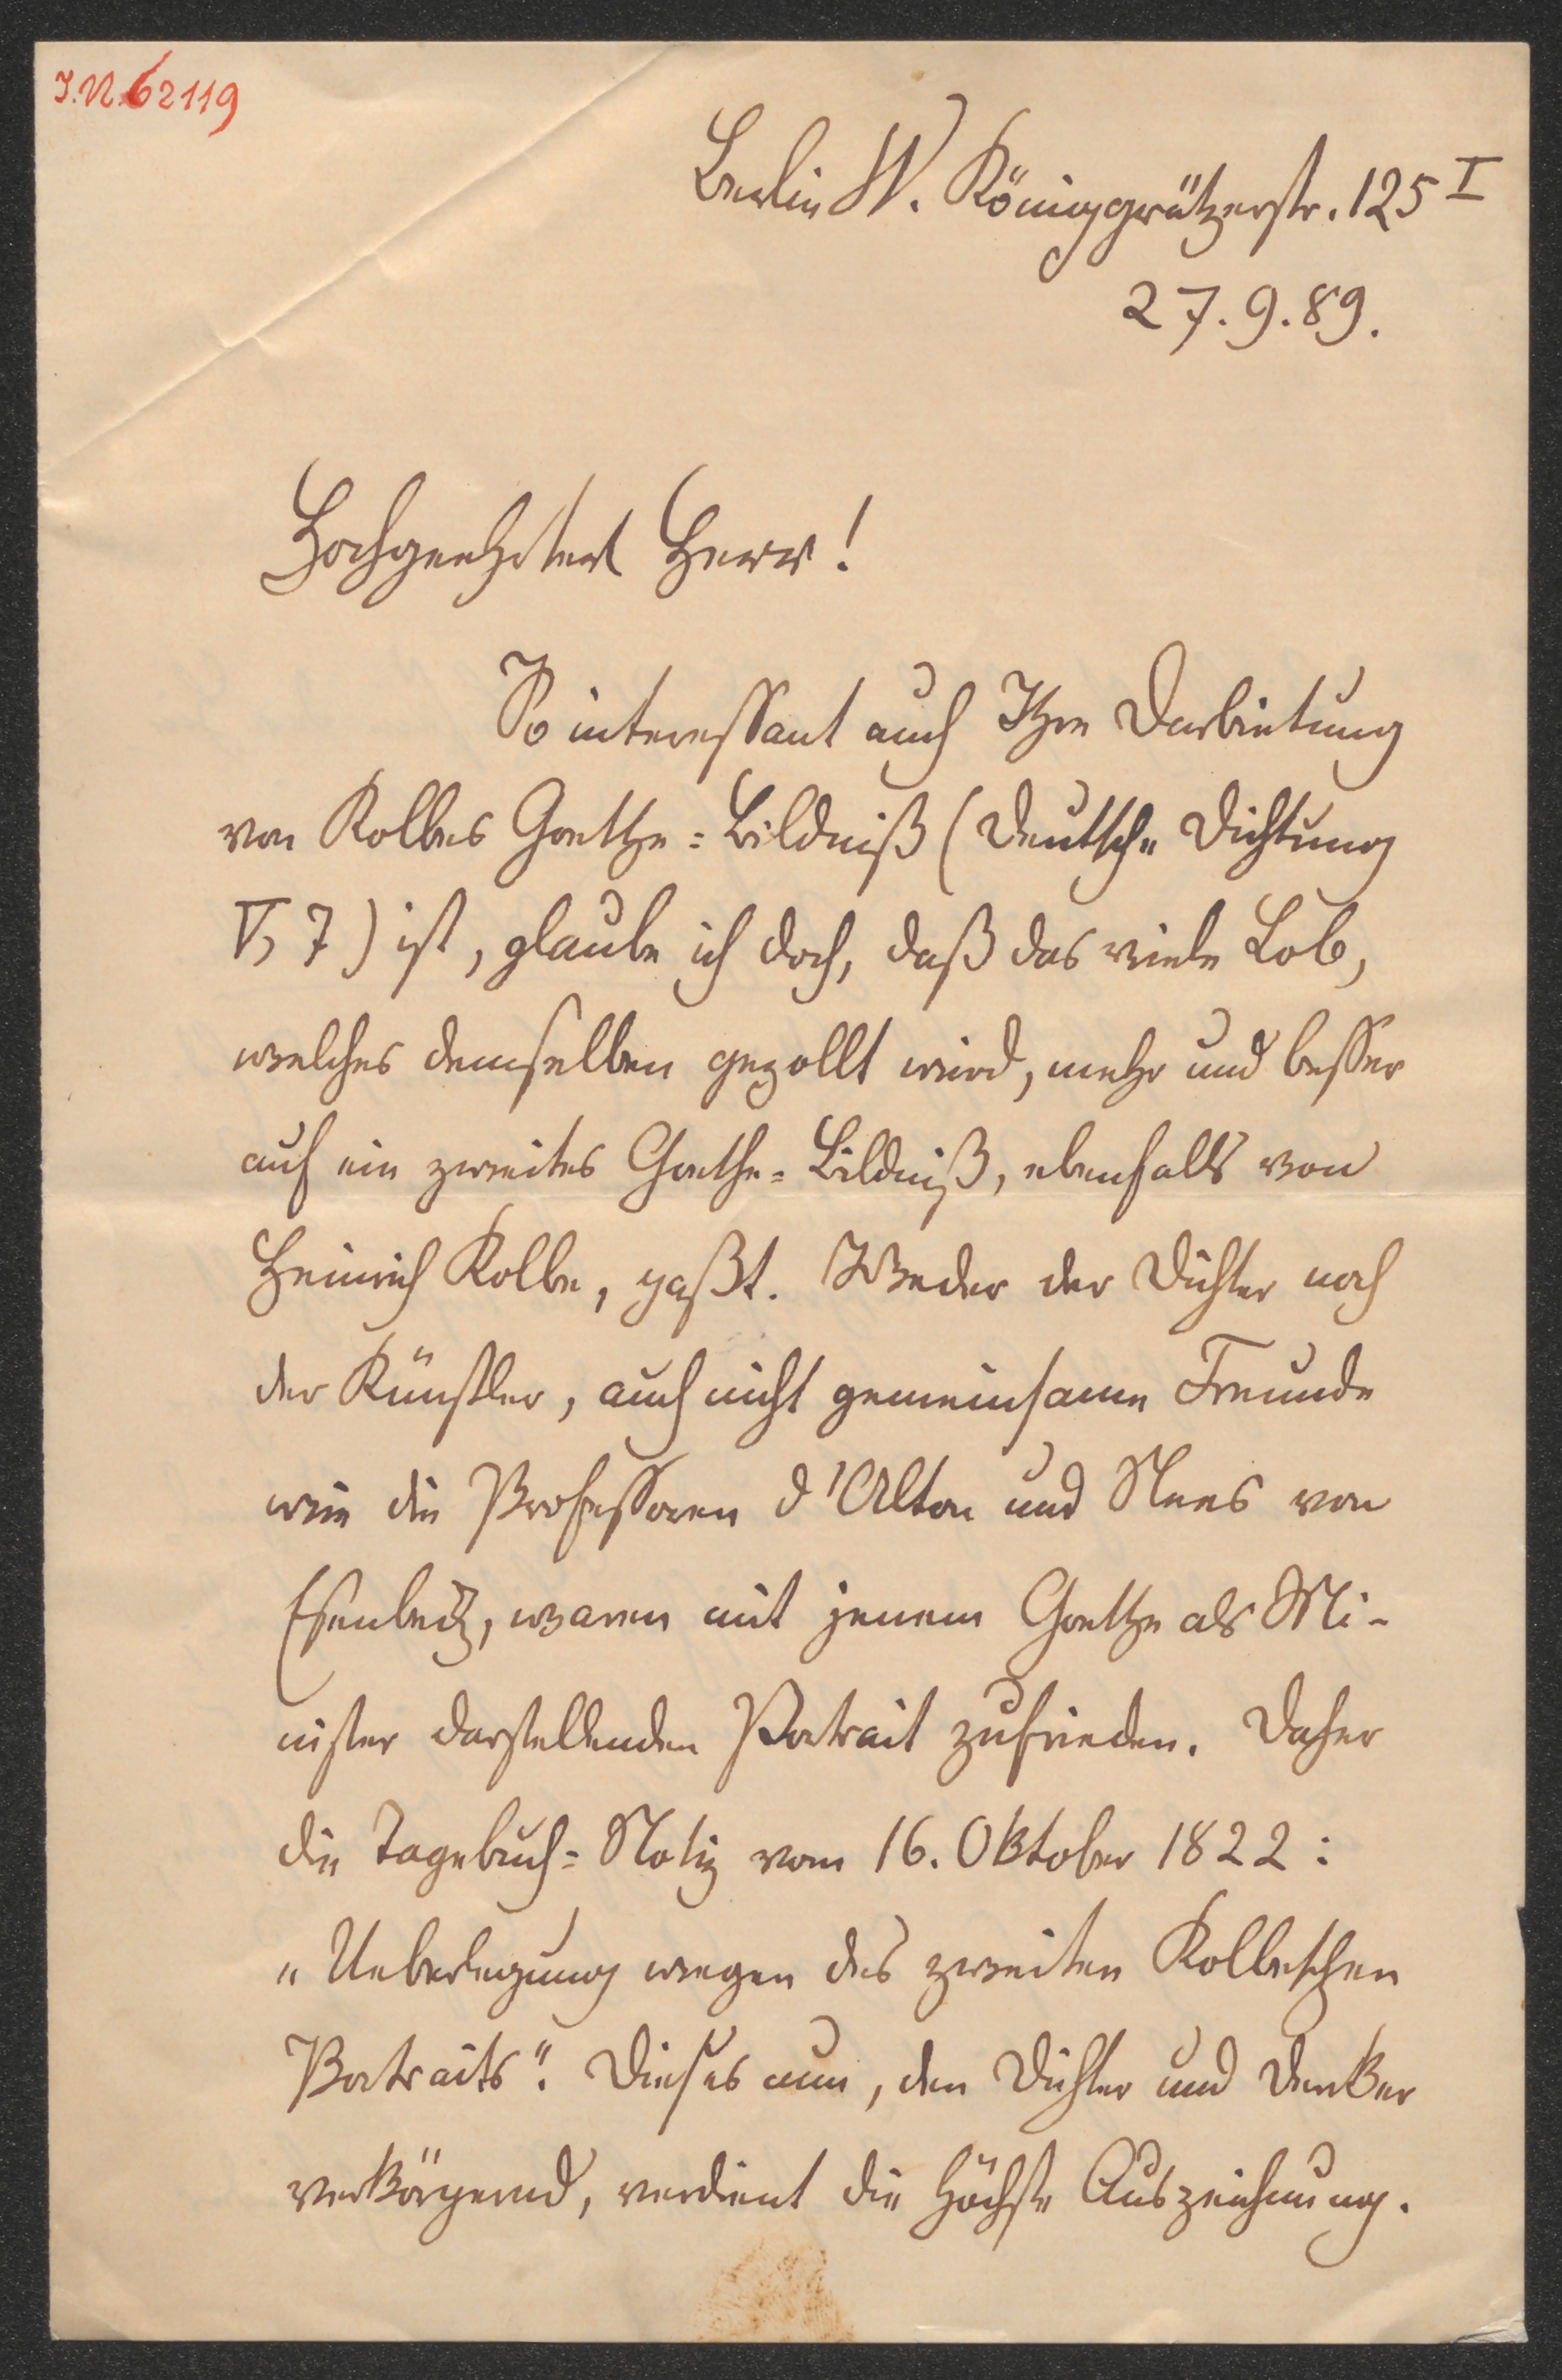 J.N. 62119
Berlin W. Königgrätzerstr. 125 I
27.9.89.
Hochgeehrter Herr!
So interessant auch Ihre Darbietung
von Kolbes Goethe=Bildniß (Deutsche Dichtung
V, 7) ist, glaube ich doch, daß das viele Lob,
welches demselben gezollt wird, mehr und besser
auf ein zweites Goethe=Bildniß, ebenfalls von
Heinrich Kolbe, paßt. Weder der Dichter noch
der Künstler, auch nicht gemeinsame Freunde
wie die Professoren d'Alton und Nees von
Esenbeck, waren mit jenem Goethe als Mi-
nister darstellenden Portrait zufrieden. Daher
die Tagebuch=Notiz vom 16. Oktober 1822:
"Ueberlegung wegen des zweiten Kolbeschen
Portraits". Dieses nun, den Dichter und Denker
verkörpernd, verdient die höchste Auszeichnung.